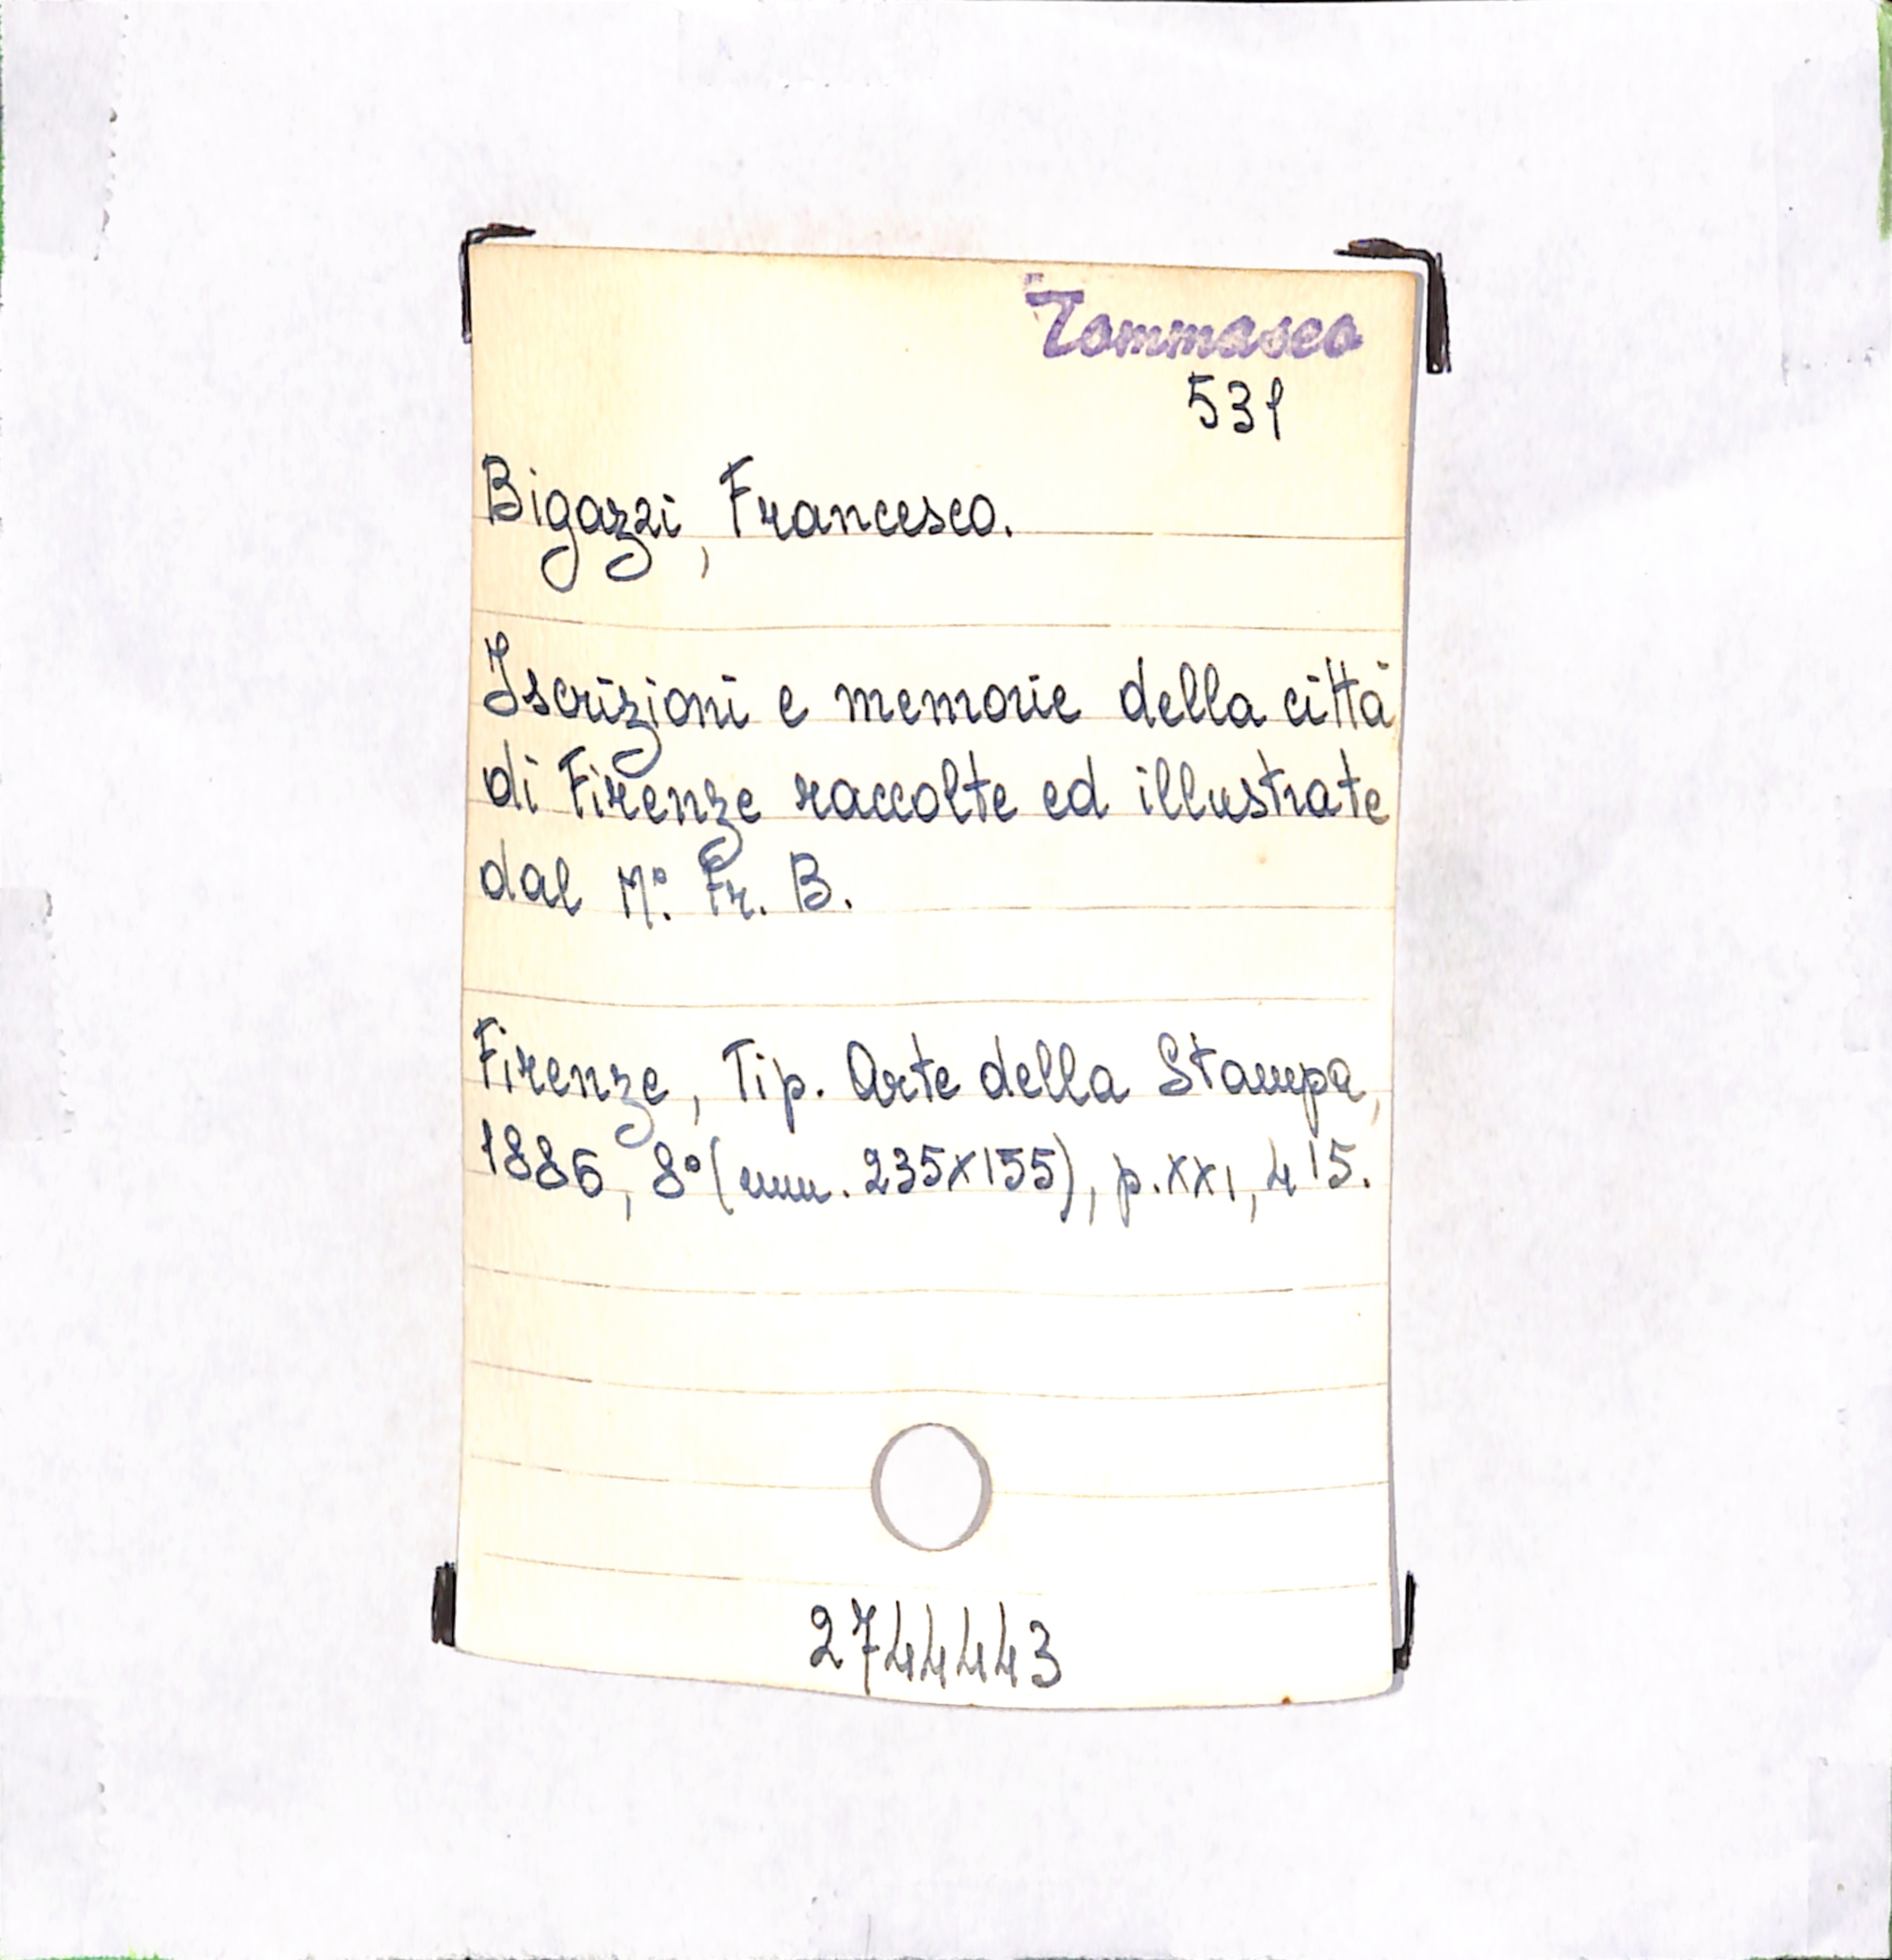 Tommaseo
531
Bigazzi, Francesco.
Iscrizioni e memorie della città
di Firenze raccolte ed illustrate
dal Mº. Fr. B.
Firenze, Tip. Arte della Stampa,
1886, 8º (mm. 235x155), p. XXI, 415.
2744443